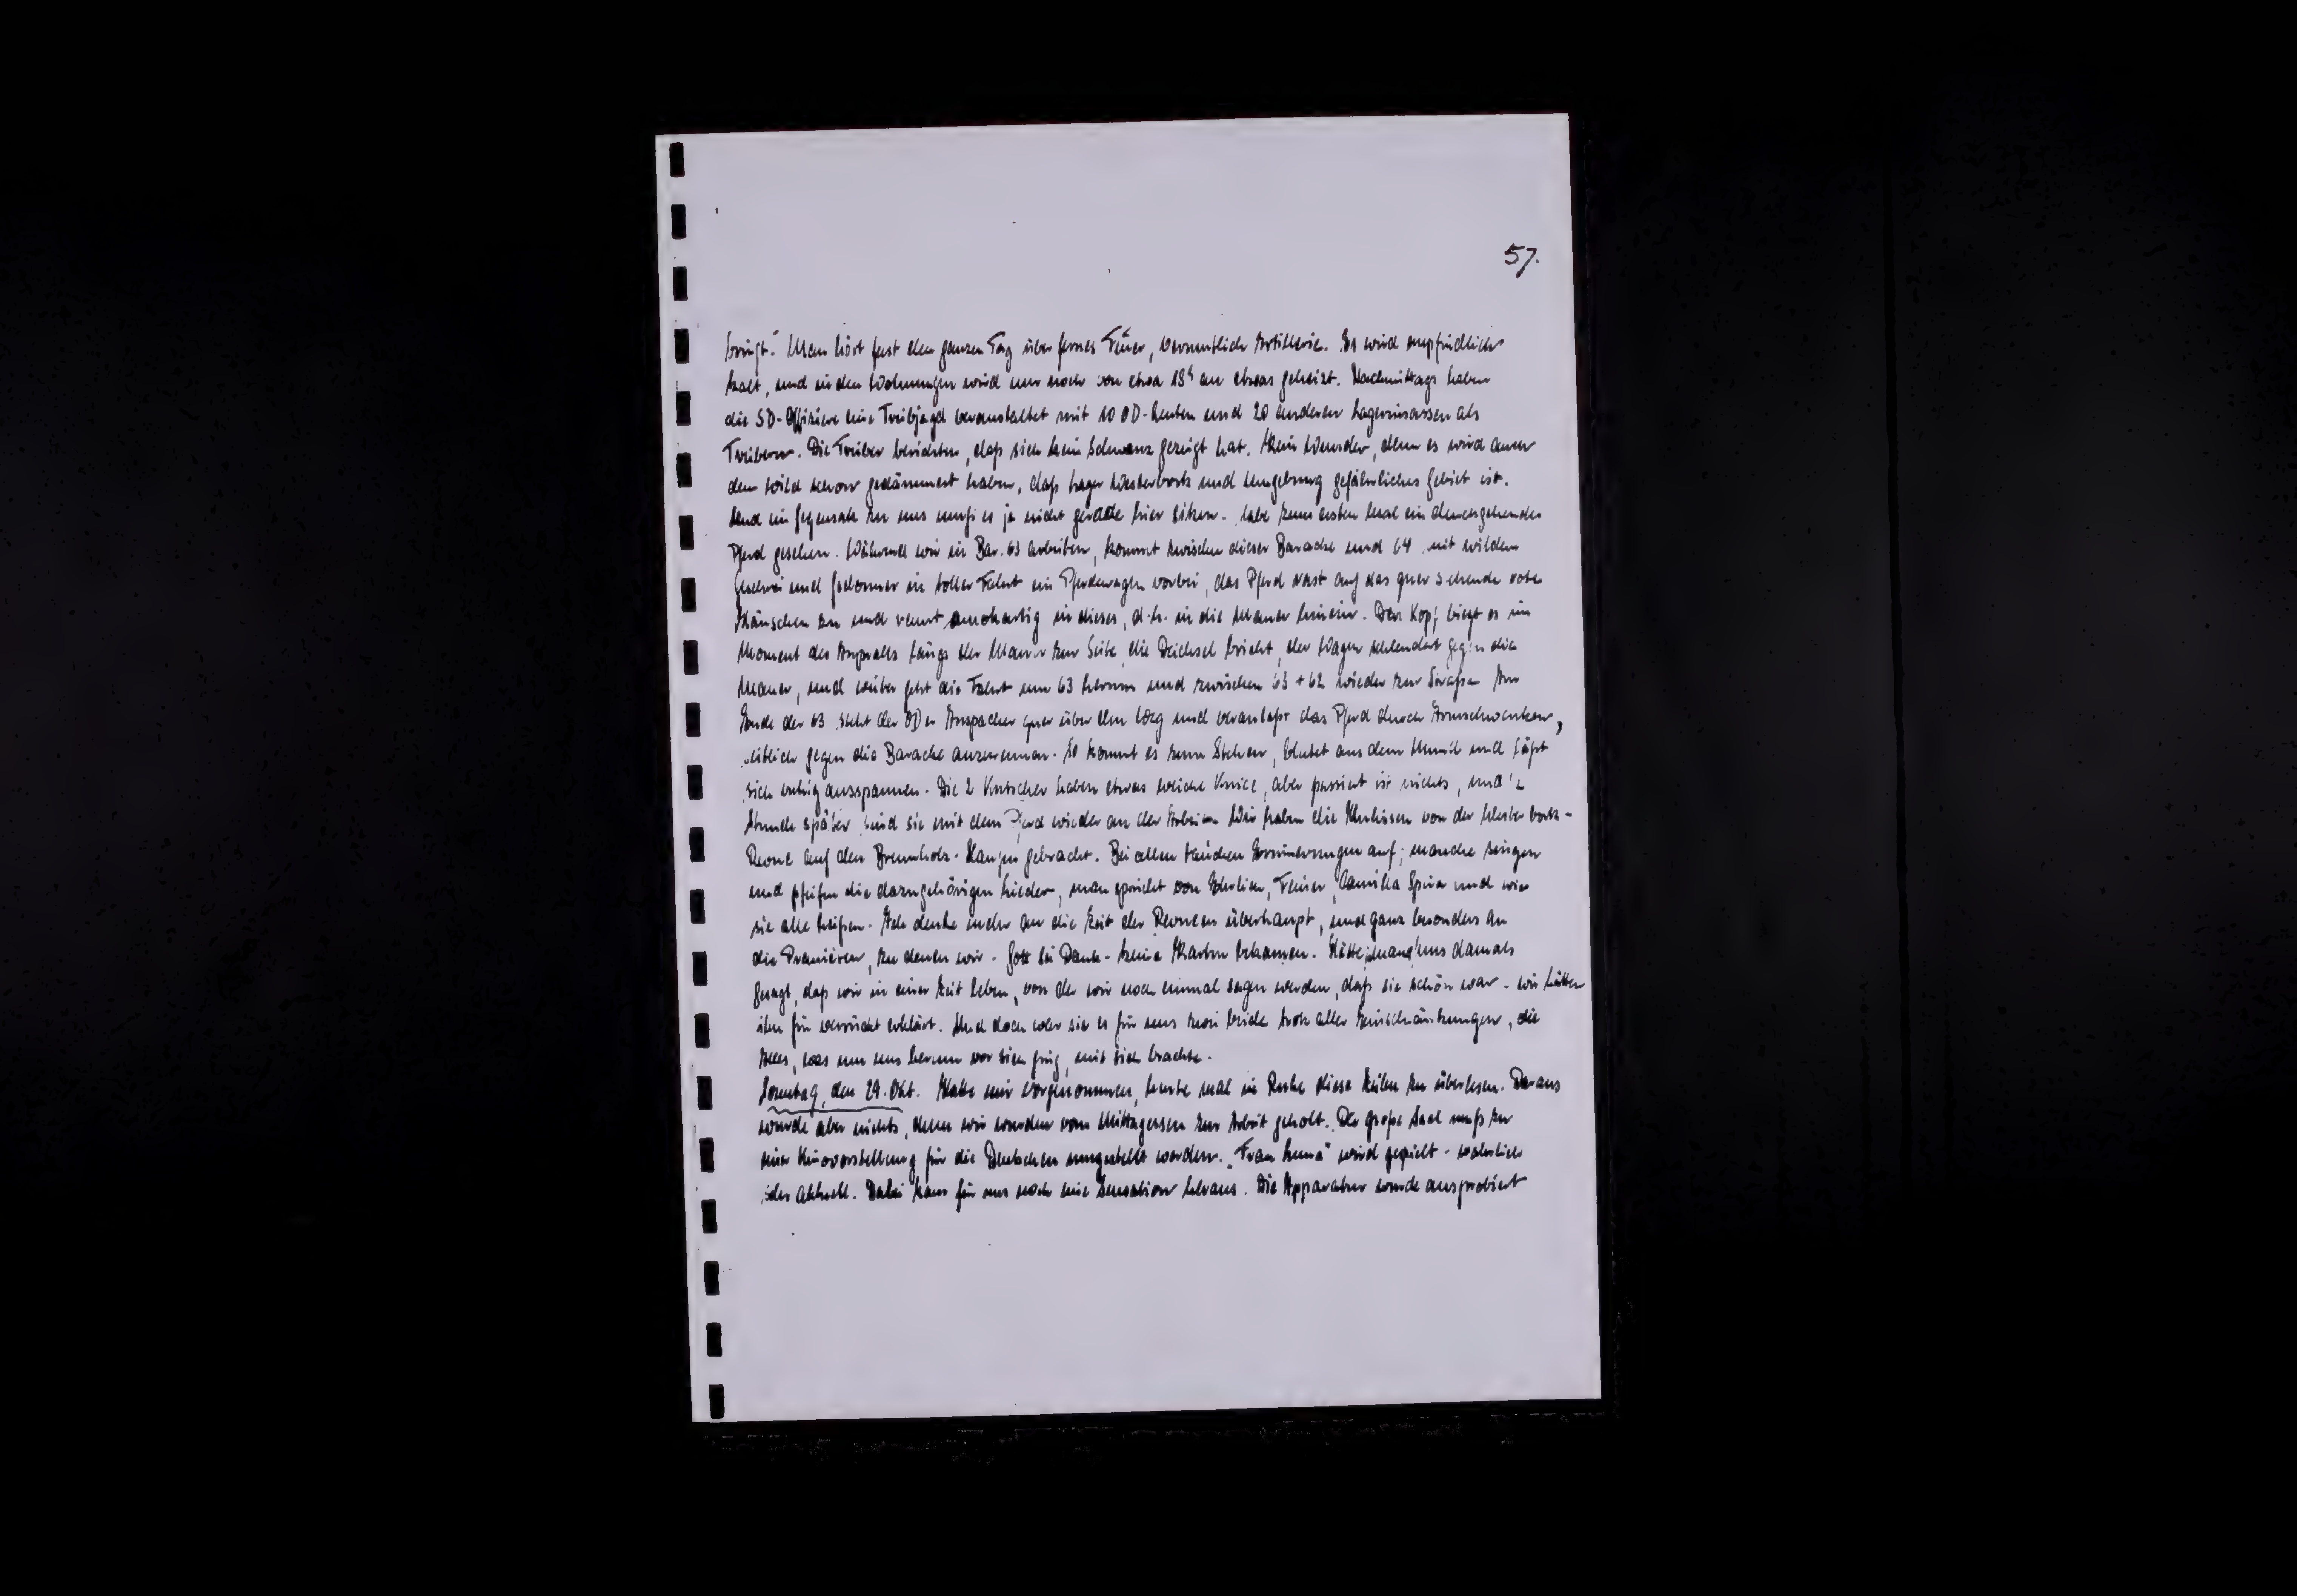 57.
bringt." Man hört fast den ganzen Tag über fernes Feuer, vermutlich Artillerie. Es wird empfindlich
kalt, und in den Wohnungen wird nur noch von etwa 18h an etwas geheizt. Nachmittags haben
die SD-Offiziere eine Treibjagd veranstaltet mit 10 OD-Leuten und 20 anderen Lagerinsassen als
Treibern. Die Treiber berichten, daß sich kein Schwanz gezeigt hat. Kein Wunder, denn es wird auch
dem Wild schon gedämmert haben, daß Lager Westerbork und Umgebung gefährliches Gebiet ist.
Und im Gegensatz zu uns muß es ja nicht gerade hier sitzen. - Habe zum ersten Mal ein durchgehendes
Pferd gesehen. Während wir in Bar. 63 arbeiten, kommt zwischen dieser Baracke und 64 mit wildem
Geschrei und Gedonner in toller Fahrt ein Pferdewagen vorbei, das Pferd rast auf das quer stehende rote
Häuschen zu und rennt amokartig in dieses, d.h. in die Mauer hinein. Den Kopf biegt es im
Moment des Anpralls längs der Mauer zur Seite, die Deichsel bricht, der Wagen schleudert gegen die
Mauer, und weiter geht die Fahrt um 63 herum und zwischen 63 + 62 wieder zur Straße. Am
Ende der 63 steht der ODer Anspacher quer über dem Weg und veranlaßt das Pferd durch Armschwenken,
seitlich gegen die Baracke anzurennen. So kommt es zum Stehen, blutet aus dem Mund und läßt
sich ruhig ausspannen. Die 2 Kutscher haben etwas weiche Kniee, aber passiert ist nichts, und ½
Stunde später sind sie mit dem Pferd wieder an der Arbeit. - Wir haben die Kulissen von der Westerbork-
Revue auf den Brennholz-Haufen gebracht. Bei allen tauchen Erinnerungen auf; manche singen
und pfeifen die dazugehörigen Lieder, man spricht von Ehrlich, Feiner, Camilla Spira und wie
sie alle heißen. Ich denke mehr an die Zeit der Revuen überhaupt, und ganz besonders an
die Premièren, zu denen wir - Gott sei Dank - keine Karten bekamen. Hätte jemand uns damals
gesagt, daß wir in einer Zeit leben, von der wir noch einmal sagen werden, daß sie schön war - wir hätten
ihn für verrückt erklärt. Und doch war sie es für uns zwei beide trotz aller Einschränkungen, die
Alles, was um uns herum vor sich ging, mit sich brachte.
Sonntag, den 29. Okt. Hatte mir vorgenommen, heute mal in Ruhe diese Zeilen zu überlesen. Daraus
wurde aber nichts, denn wir wurden vom Mittagessen zur Arbeit geholt. Der große Saal muß zu
einer Kinovorstellung für die Deutschen umgestellt werden. "Frau Luna" wird gespielt - wahrlich
sehr aktuell. Dabei kam für uns noch eine Sensation heraus. Die Apparatur wurde ausprobiert